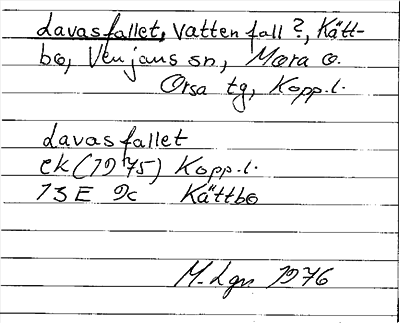 Lavasfallet, vattenfall?, Kätt-
bo, Venjans sn, Mora o.
Orsa tg, Kopp.l.
Lavasfallet
ek (1975) Kopp.l.
13E 9c Kättbo
M. Lgn 1976